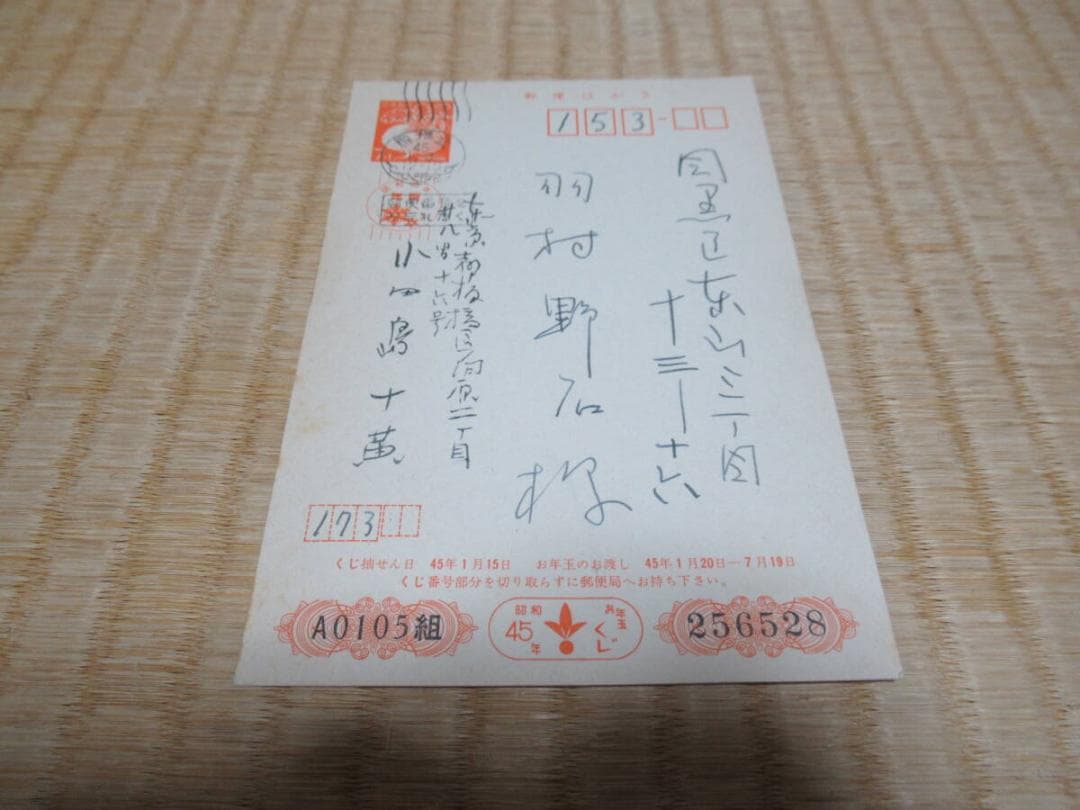 郵便はがき
153
目黒区東山三丁目
十三ー十六
羽村野石様
東京都板橋区
二丁目
十六号
小田島十黄
173
くじ抽せん日 45年1月15日 お年玉のお渡し 45年1月20日ー7月19日
くじ番号部分を切り取らずに郵便局へお持ち下さい。
A0105組
昭和45年
お年玉くじ
256528